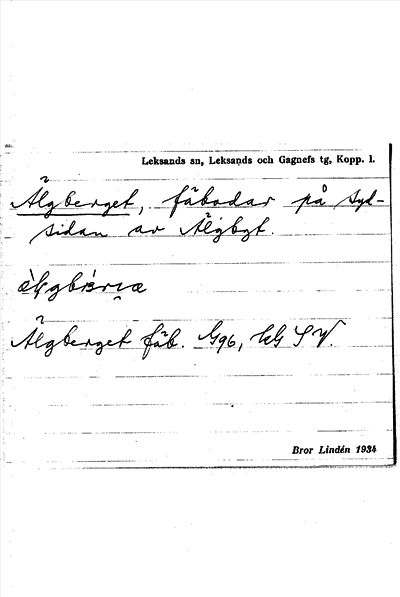 Leksands sn, Leksands och Gagnefs tg, Kopp. l.
Älgberget, fäbodar på syd-
sidan av Älgbgt.
Älgberget fäb. G96, SV.
Bror Lindén 1934